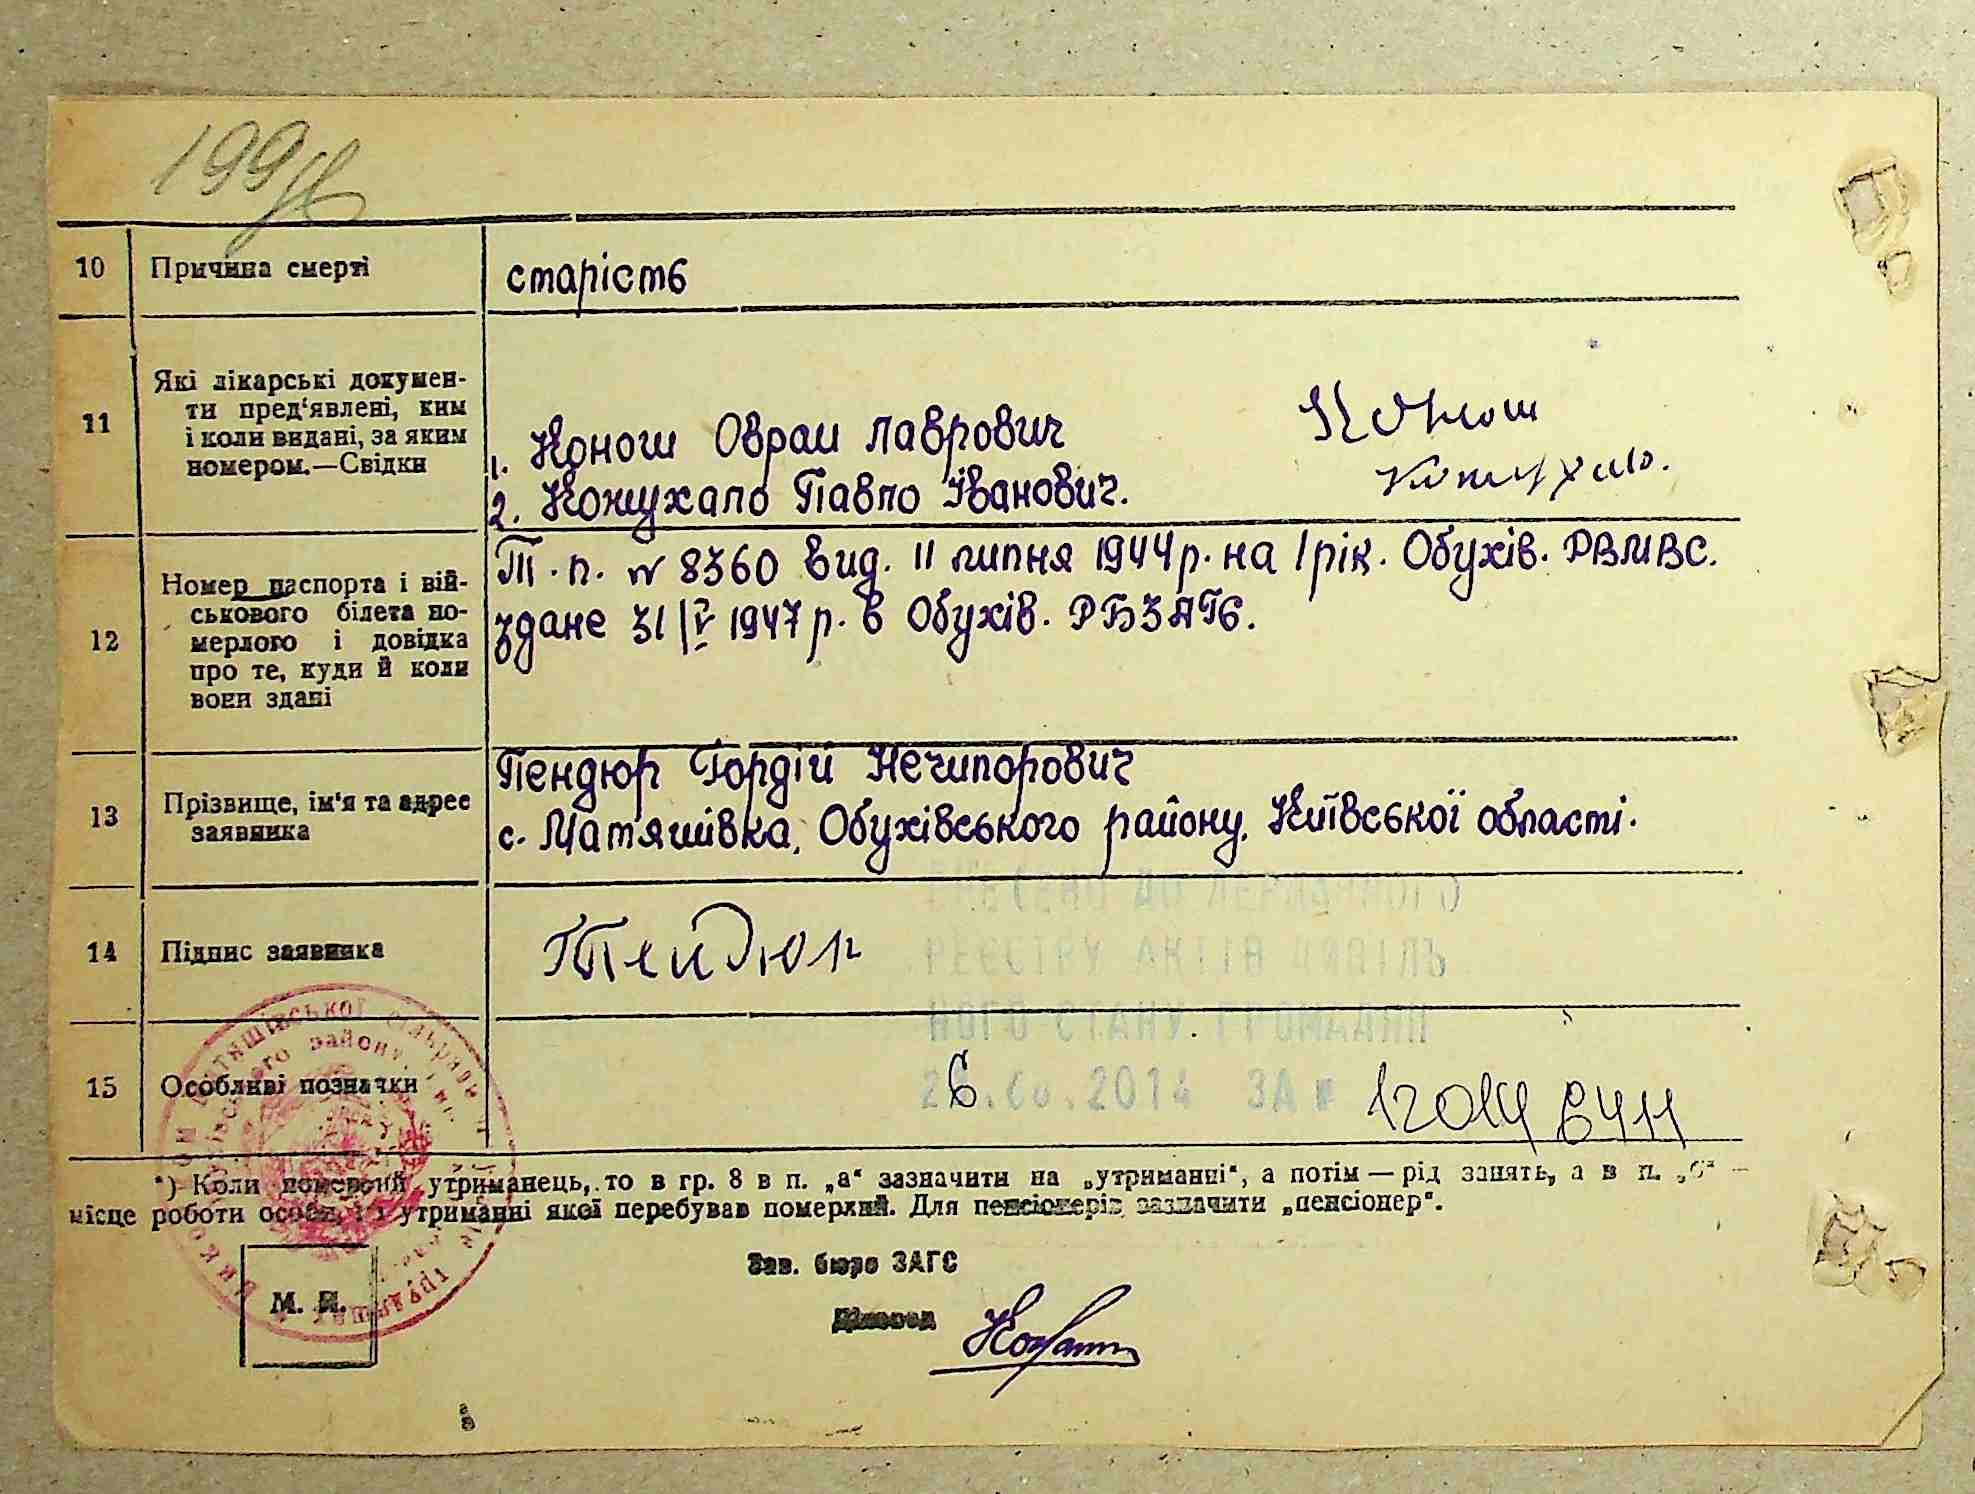 199
10 Причина смерті старість
11 Які лікарські докумен-
ти пред'явлені, ким
і коли видані, за яким
номером.—Свідки
1. Конош Оврам Лаврович Конош
2. Кожухало Павло Іванович. Кожухало.
12 Номер паспорта і вій-
ськового білета по-
мерлого і довідка
про те, куди й коли
вони здані
Т. п. № 8360 вид. 11 липня 1944 р. на 1 рік. Обухів. РВМВС.
здане 31/V 1947 р. в Обухів. РБЗАГС.
13 Прізвище, ім'я та адрес
заявника
Пендюр Гордій Нечипорович
с. Матяшівка, Обухівського району, Київської області.
ВНЕСЕНО ДО ДЕРЖАВНОГО
14 Підпис заявника Пендюр
РЕЄСТРУ АКТІВ ЦИВІЛЬ
НОГО СТАНУ ГРОМАДЯН
15 Особливі позначки
26. .2014 ЗА №
*) Коли померлий утриманець, то в гр. 8 в п. „а“ зазначити на „утриманні“, а потім — рід занять, а в п. „б“ —
місце роботи особи, на утриманні якої перебував померлий. Для пенсіонерів зазначити „пенсіонер“.
Зав. бюро ЗАГС
М. П.
Діловод